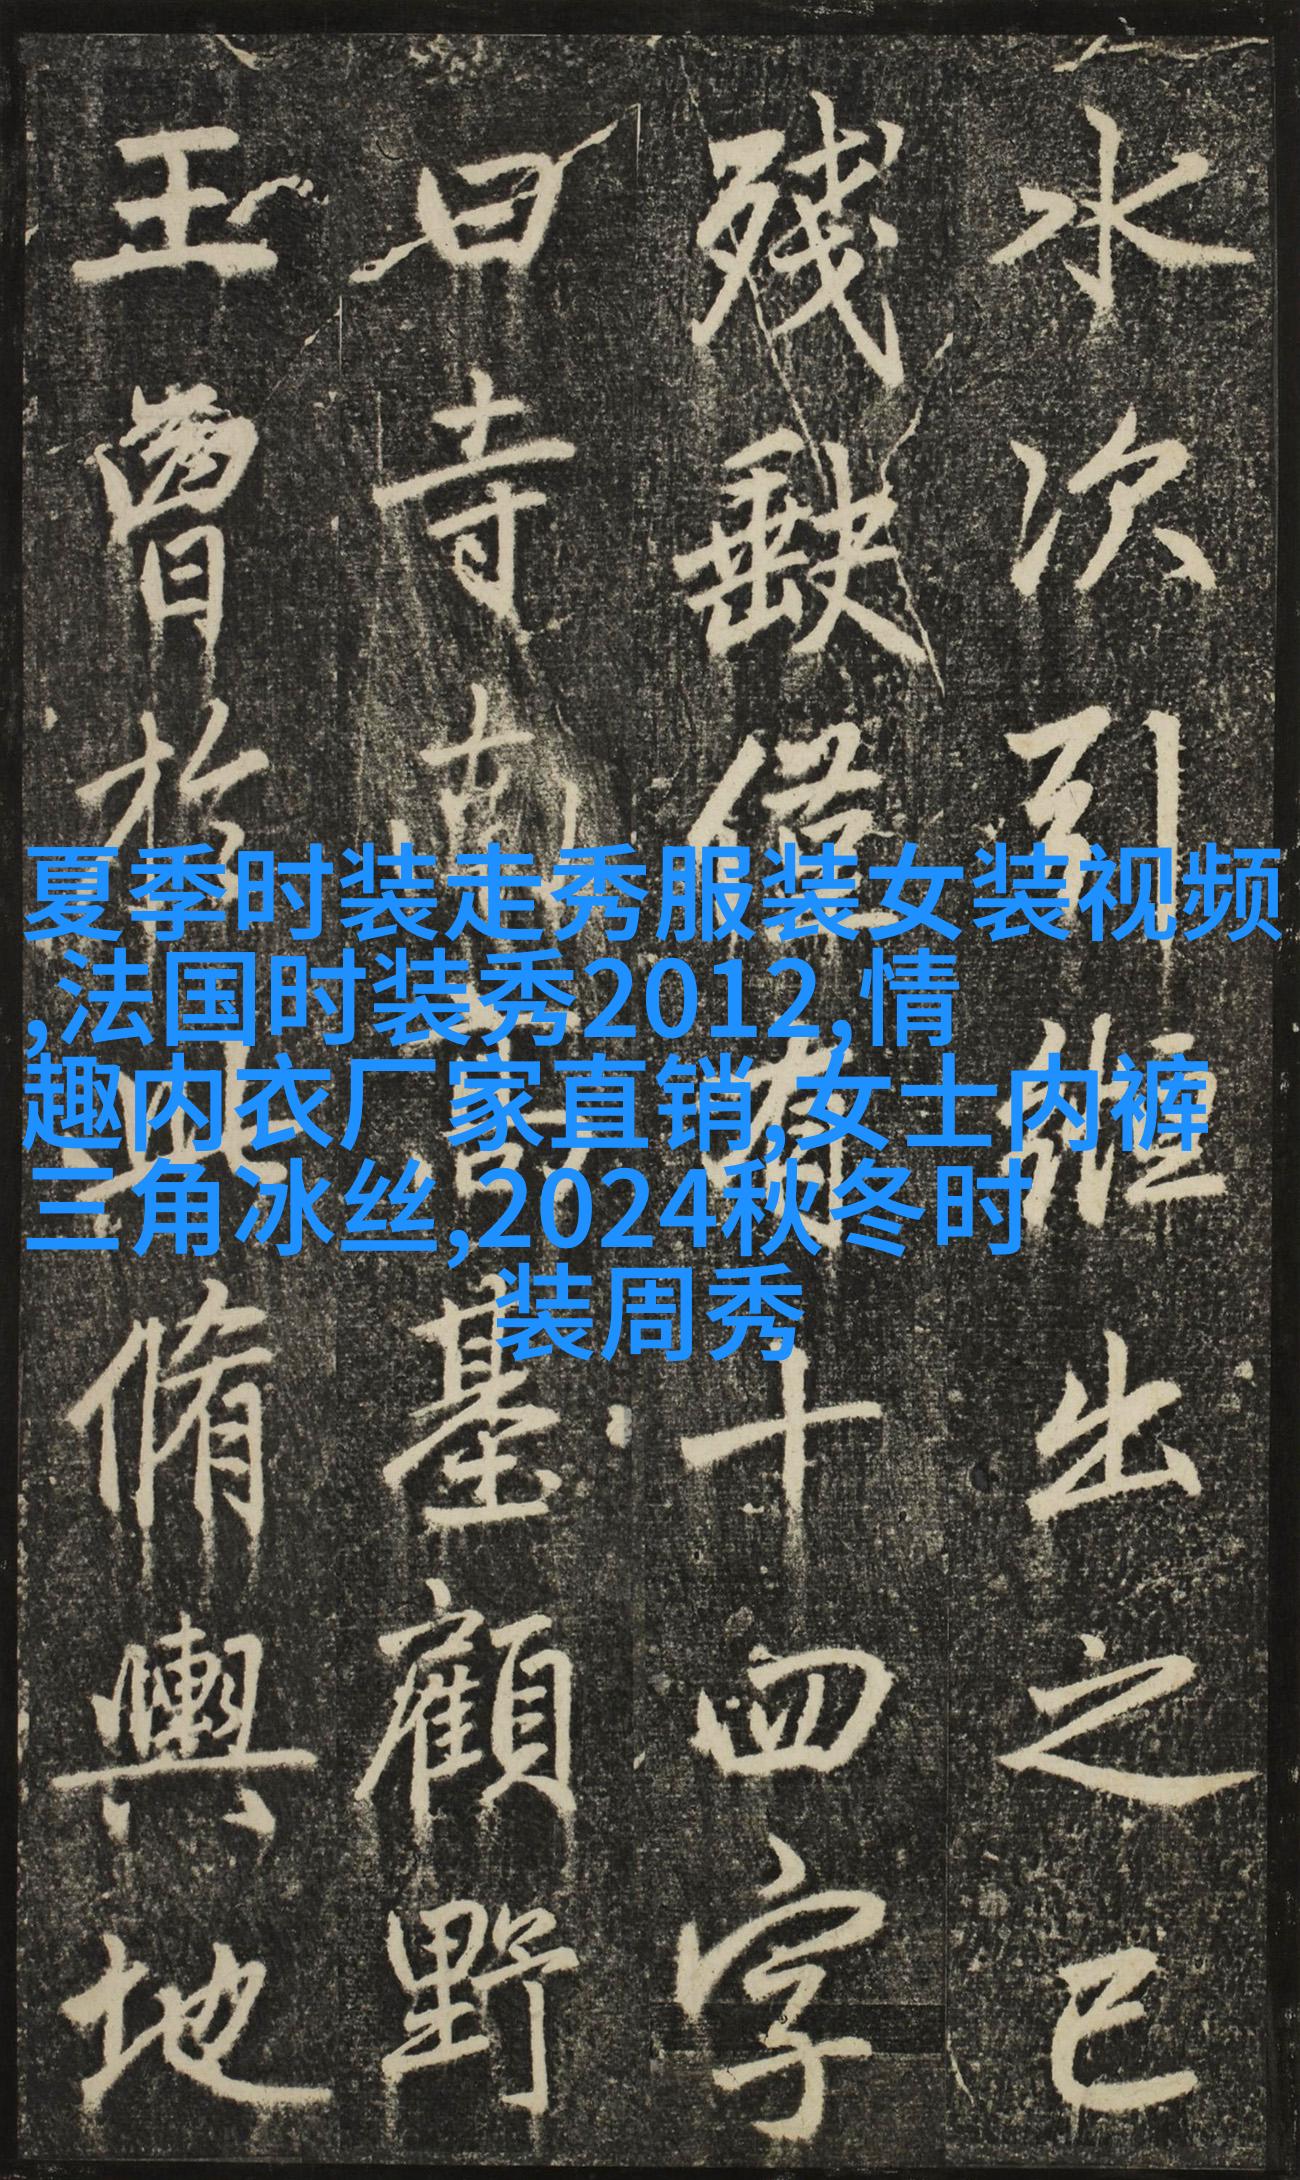 水次引繼出之已
殘缺僅有十四字
曰寺南基顧野
王曾於此脩輿地
夏季时装走秀服装女装视频
,法国时装秀2012,情
趣内衣厂家直销,女士内裤
三角冰丝,2024秋冬时
装周秀